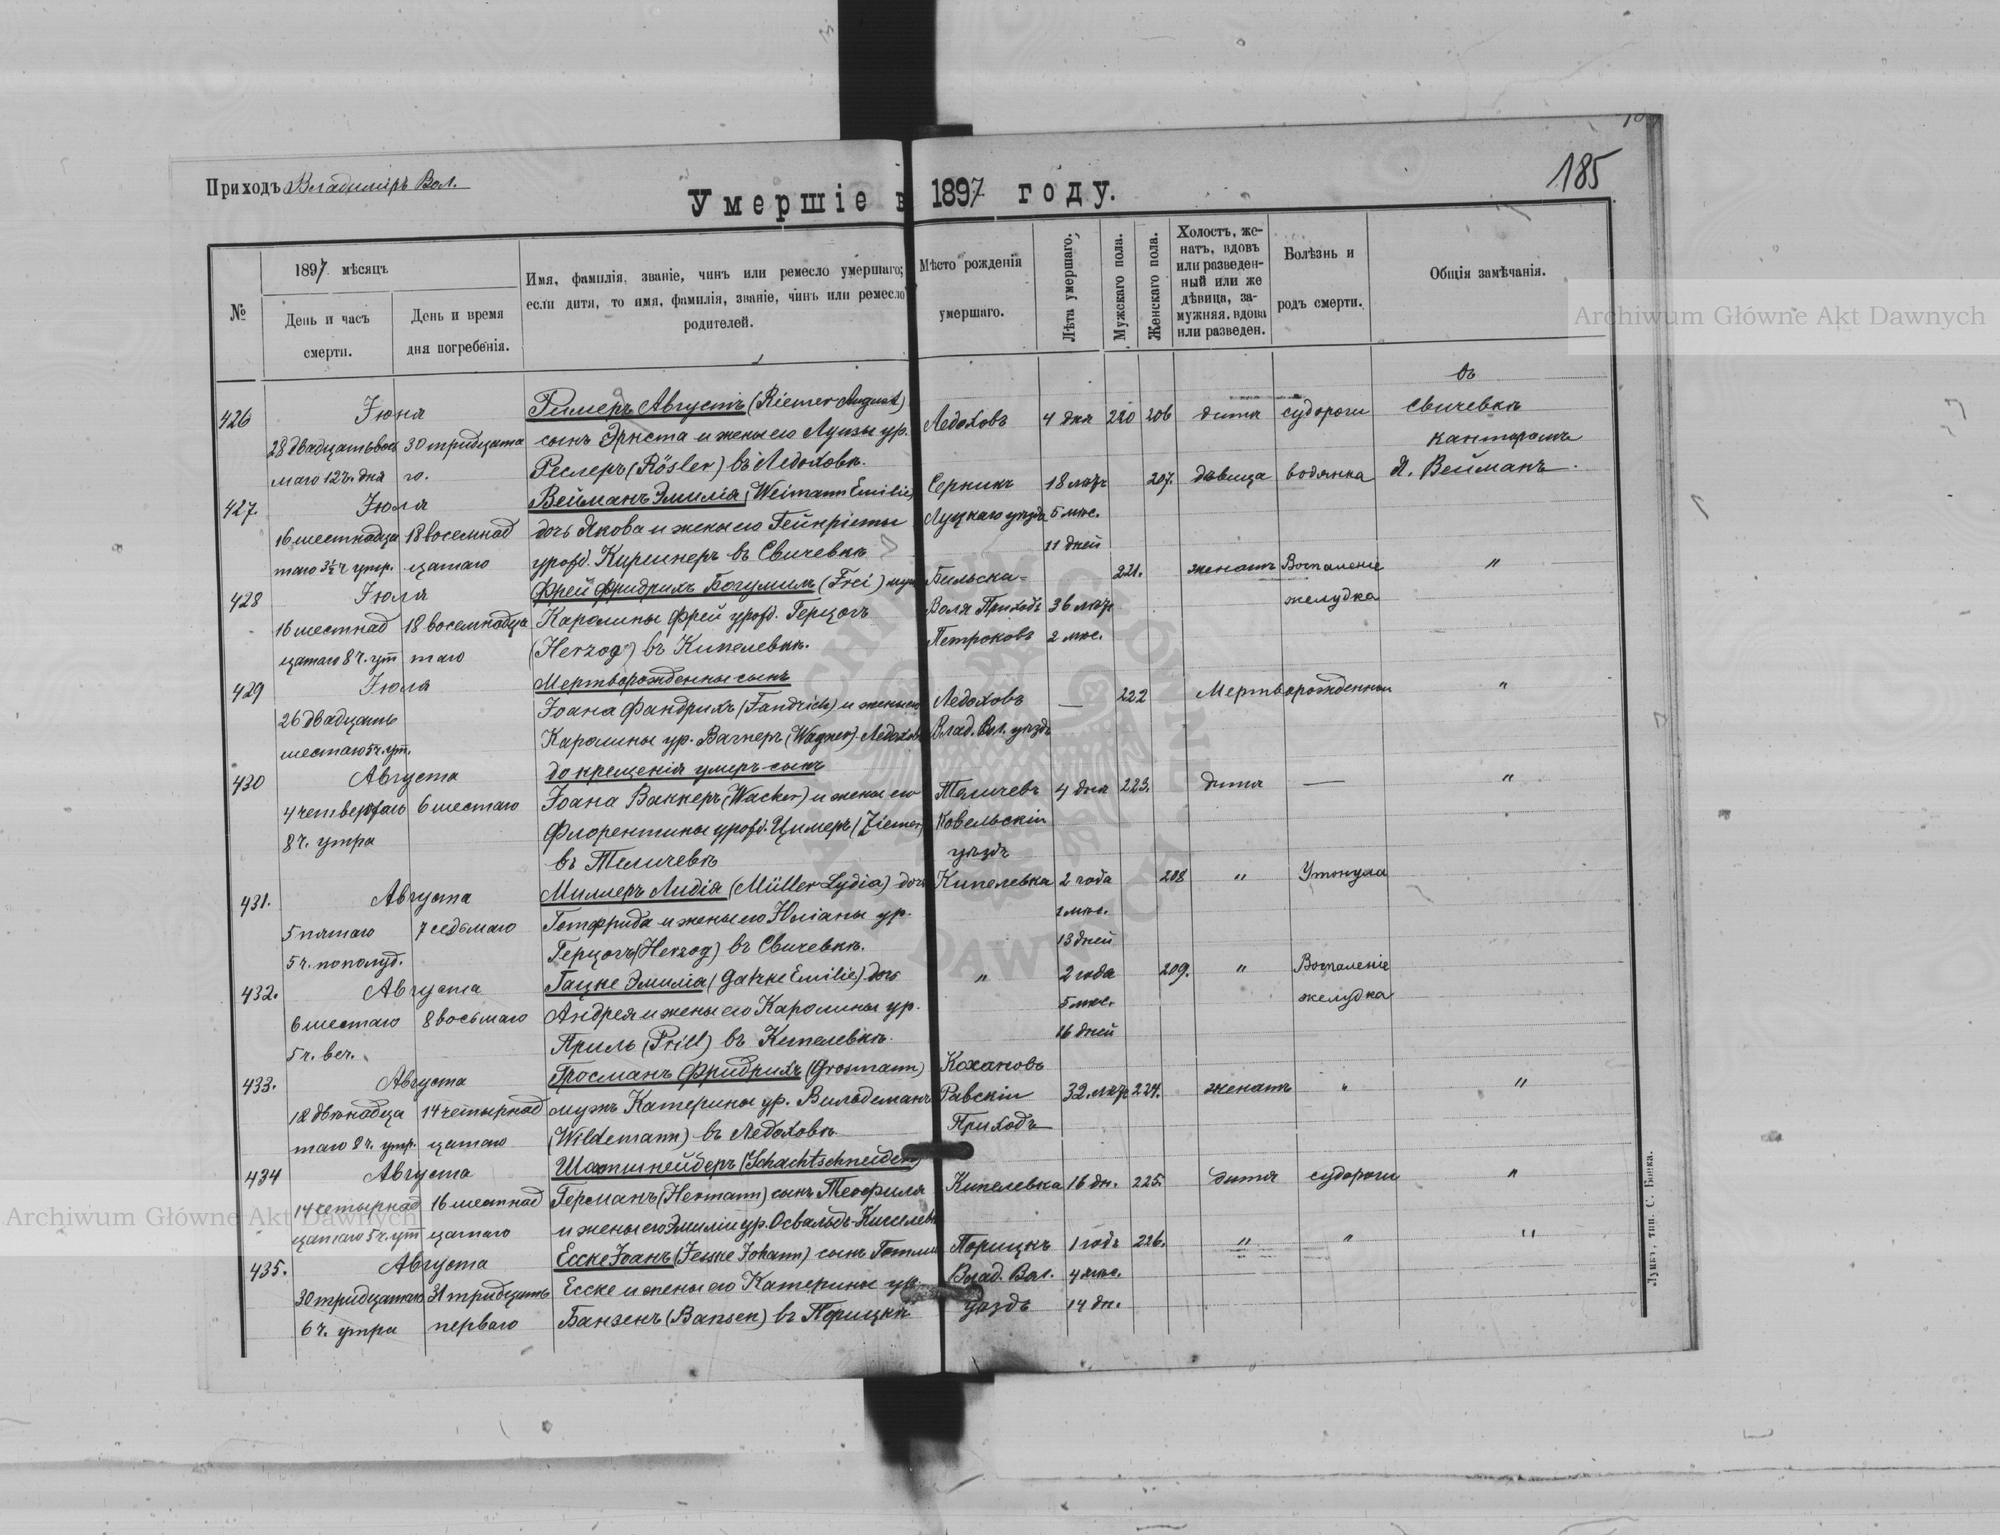 185
Приходъ Владимiръ Вол.
Умершіе в 1897 году.
№
1897 мѣсяцъ
День и часъ смерти.
День и время дня погребенія.
Имя, фамилія, званіе, чинъ или ремесло умершаго;
если дитя, то имя, фамилія, званіе, чинъ или ремесло
родителей.
Мѣсто рожденія
умершаго.
Лѣта умершаго.
Мужскаго пола.
Женскаго пола.
Холостъ, же-
натъ, вдовъ
или разведен-
ный или же
дѣвица, за-
мужняя, вдова
или разведен.
Болѣзнь и
родъ смерти.
Общія замѣчанія.
426 Іюня Ример Августъ (Riemer August) Ледоховъ 4 дня 220 206 дитя судороги
въ Свичевкѣ
канторомъ
Я. Вейманъ.
28 двадцатьвось 30 тридцата сынъ Эрнста и жены его Луизы ур.
маго 12 ч. дня го. Реслеръ (Rösler) въ Ледоховкѣ.
427. Іюля Вейманъ Эмилія (Weimann Emilie) Серникъ 18 лѣтъ 207. дѣвица водянка
16 шестнадца 18 восемнад дочь Якова и жены его Гейнріеты Луцкаго уѣзда 5 мѣс.
таго 3½ ч утр. цатаго урожд. Киршнеръ въ Свичевкѣ 11 дней
428 Іюля Фрей Фридрихъ Богумилъ (Frei) мужъ Бильска- 221. женатъ Воспаленіе "
16 шестнад 18 восемнадца Каролины Фрей урожд. Герцогъ Воля Приходъ 36 лѣтъ желудка
цатаго 8 ч. ут таго (Herzog) въ Кипелевкѣ. Петроковъ 2 мѣс.
429 Іюля Мертворожденны сынъ
26 двадцать Іоана Фандрихъ (Fandrich) и жены его Ледоховъ — 222 Мертворожденный "
шестаго 5 ч. ут. Каролины ур. Вагнеръ (Wagner) Ледохов Влад. Вол. уѣздъ
430 Августа до крещенія умеръ сынъ
4 четвертаго 6 шестаго Іоана Ваккеръ (Wacker) и жены его Теличевъ 4 дня 223. дитя — "
8 ч. утра Флорентины урожд. Цимеръ (Ziemer) Ковельскій
въ Теличевкѣ уѣздъ
431. Августа Миллеръ Лидія (Müller Lydia) дочь Кипелевка 2 года 208 " Утонула
5 пятаго 7 седьмаго Готфрида и жены его Юліаны ур. 1 мѣс.
5 ч. пополуд. Герцогъ (Herzog) въ Свичевкѣ. 13 дней
432. Августа Гацке Эмилія (Gatzke Emilie) дочь " 2 года 209. " Воспаленіе
6 шестаго 8 восьмаго Андрея и жены его Каролины ур. 5 мѣс. желудка
5 ч. веч. Приль (Prill) въ Кипелевкѣ. 16 дней
433. Августа Гросманъ Фридрихъ (Grosmann) Кохановъ
12 двѣнадца 14 четырнад мужъ Катерины ур. Вильдеманъ Равскій 32 лѣтъ 224. женатъ " "
таго 8 ч. утр. цатаго (Wildemann) въ Ледоховкѣ Приходъ
434 Августа Шахтшнейдеръ (Schachtschneider)
14 четырнад 16 шестнад Германъ (Hermann) сынъ Теофиля Кипелевка 16 дн. 225. дитя судороги "
цатаго 5 ч. ут цатаго и жены его Эмиліи ур. Освальдъ
435. Августа Еске Іоанъ (Jesske Johann) сынъ Порицкъ 1 годъ 226. " " "
30 тридцатаго 31 тридцать Есске и жены его Катерины ур. Влад. Вол. 4 мѣс.
6 ч. утра перваго Банзенъ (Bansen) въ Порицкѣ уѣздъ 14 дн.
Луцкъ, тип. С. Бошка.
Archiwum Główne Akt Dawnych
Archiwum Główne Akt Dawnych